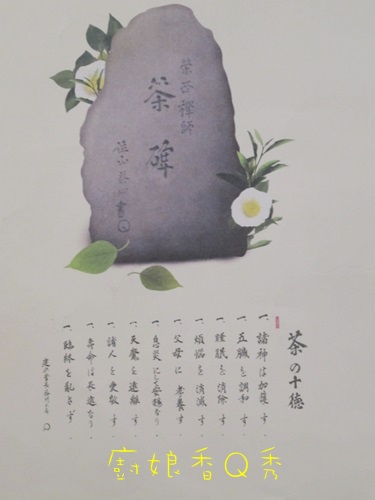 栄西禅師
茶碑
茶の十徳
一、諸神は加護す
一、五臓を調和す
一、睡眠を消除す
一、煩悩を消滅す
一、父母に孝養す
一、息災にして安穏なり
一、天魔を遠離す
一、諸人を愛敬す
一、寿命は長遠なり
一、臨終を乱さず
廚娘香Q秀